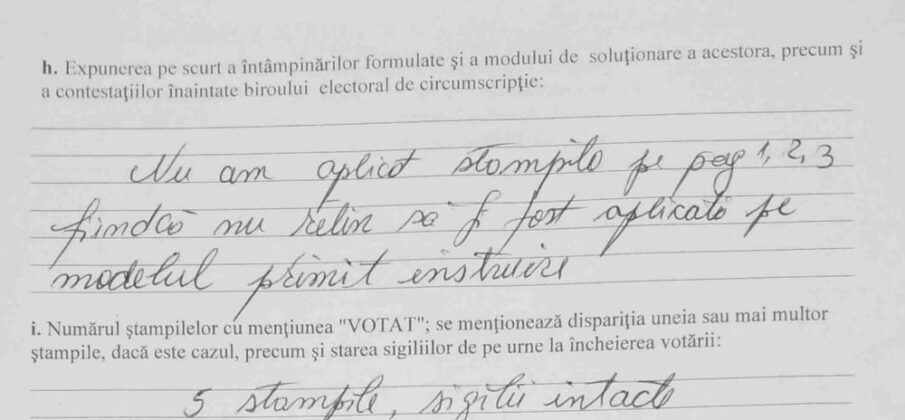 h. Expunerea pe scurt a întâmpinărilor formulate şi a modului de soluţionare a acestora, precum şi
a contestaţiilor înaintate biroului electoral de circumscripţie:
Nu am aplicat stampila pe pag 1, 2, 3
findcă nu rețin să fi fost aplicată pe
modelul primit instruire
i. Numărul ştampilelor cu menţiunea "VOTAT"; se menţionează dispariţia uneia sau mai multor
ştampile, dacă este cazul, precum şi starea sigiliilor de pe urne la încheierea votării:
5 stampile, sigilii intacte